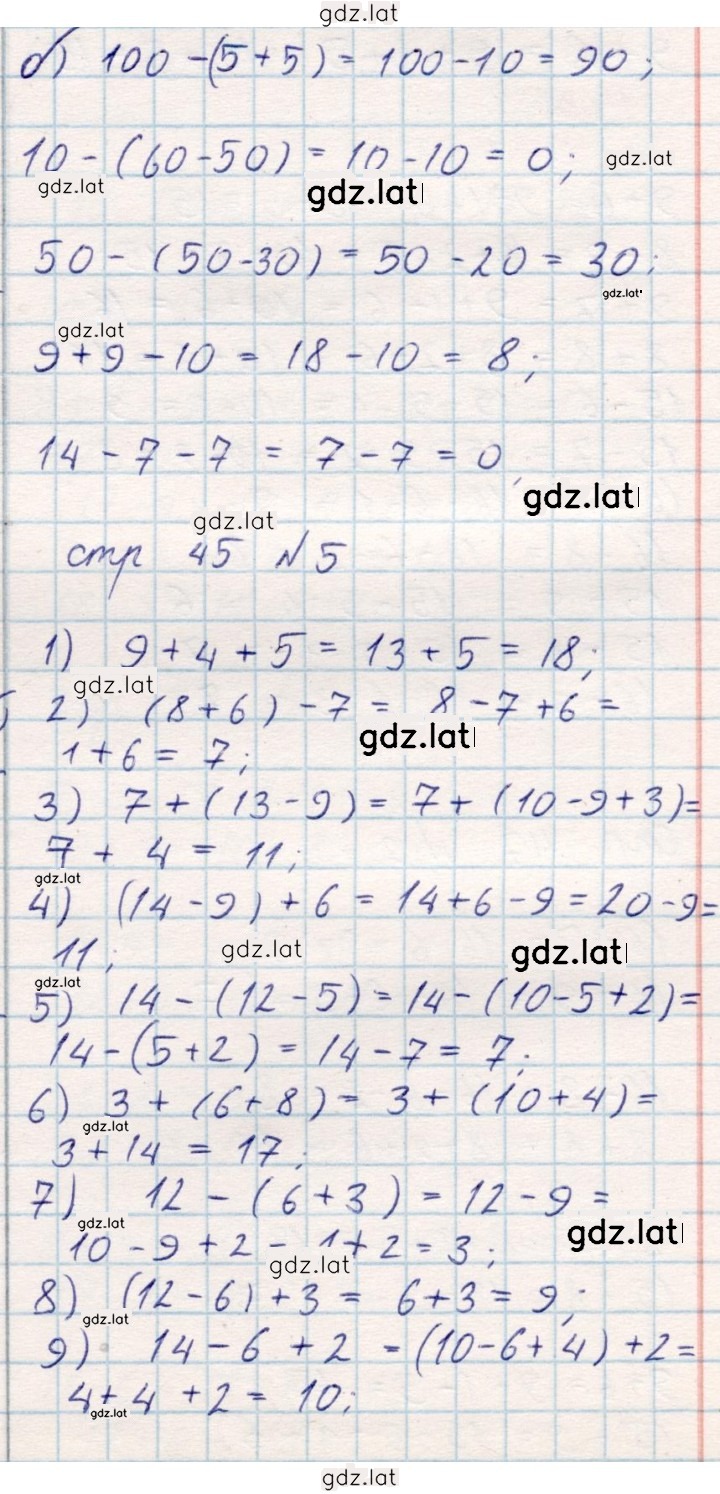 gdz.lat
б) 100 - (5 + 5) = 100 - 10 = 90;
10 - (60 - 50) = 10 - 10 = 0; gdz.lat
gdz.lat gdz.lat
50 - (50 - 30) = 50 - 20 = 30;
gdz.lat
gdz.lat
9 + 9 - 10 = 18 - 10 = 8;
14 - 7 - 7 = 7 - 7 = 0
gdz.lat
gdz.lat
стр 45 №5
1) 9 + 4 + 5 = 13 + 5 = 18;
gdz.lat
2) (8 + 6) - 7 = 8 - 7 + 6 =
1 + 6 = 7; gdz.lat
3) 7 + (13 - 9) = 7 + (10 - 9 + 3) =
7 + 4 = 11;
gdz.lat
4) (14 - 9) + 6 = 14 + 6 - 9 = 20 - 9 =
11; gdz.lat gdz.lat
gdz.lat
5) 14 - (12 - 5) = 14 - (10 - 5 + 2) =
14 - (5 + 2) = 14 - 7 = 7;
6) 3 + (6 + 8) = 3 + (10 + 4) =
gdz.lat
3 + 14 = 17;
7) 12 - (6 + 3) = 12 - 9 =
gdz.lat gdz.lat
10 - 9 + 2 = 1 + 2 = 3;
gdz.lat
8) (12 - 6) + 3 = 6 + 3 = 9;
gdz.lat
9) 14 - 6 + 2 = (10 - 6 + 4) + 2 =
4 + 4 + 2 = 10;
gdz.lat
gdz.lat